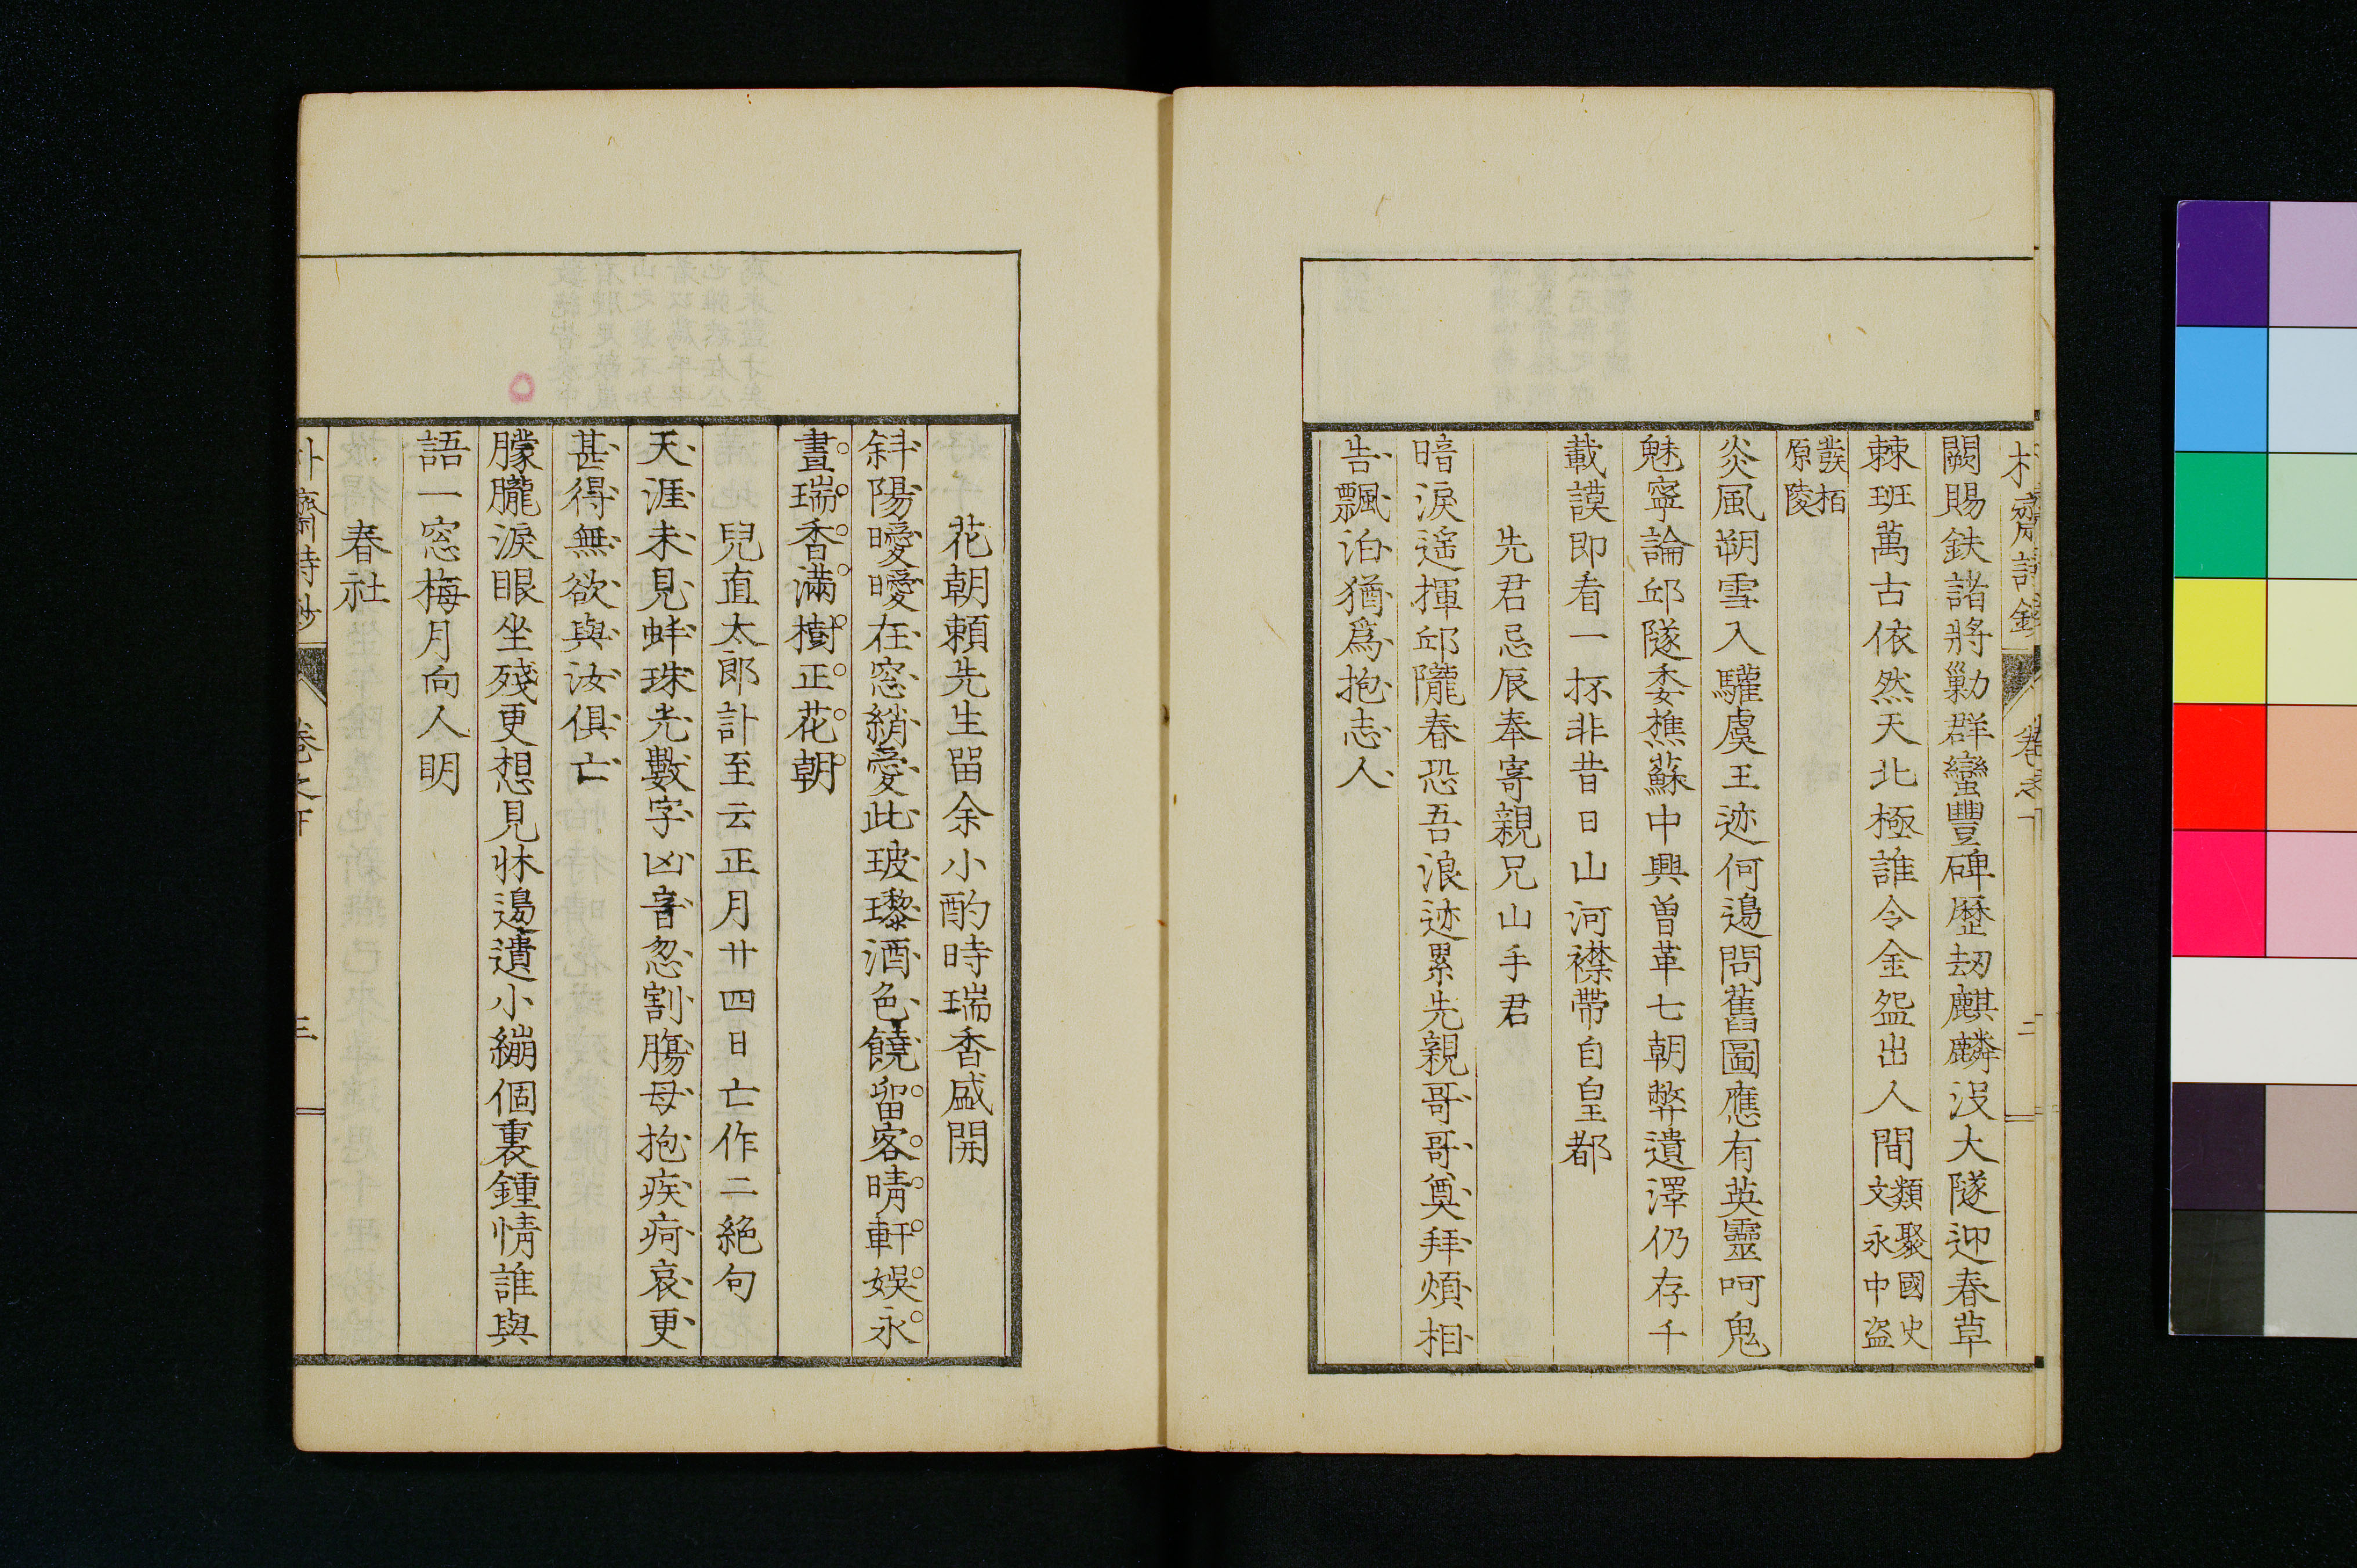 闕賜鈇諸將勦群蠻豐碑歷刼麒麟沒大隧迎春草
棘班萬古依然天北極誰令金盌出人間類聚國史文永中盗
發栢原陵
炎風朔雪入驩虞王迹何邊問舊圖應有英靈呵鬼
魅寧論邱隧委樵蘇中興曾革七朝弊遺澤仍存千
載謨即看一抔非昔日山河襟帶自皇都
先君忌辰奉寄親兄山手君
暗淚遙揮邱隴春恐吾浪迹累先親哥哥奠拜煩相
告飄泊猶爲抱志人
花朝賴先生留余小酌時瑞香盛開
斜陽曖曖在窓綃愛此玻瓈酒色饒留客晴軒娛永
晝瑞香滿樹正花朝
兒直太郎訃至云正月廿四日亡作二絕句
天涯未見蚌珠光數字凶音忽割腸母抱疾痾哀更
甚得無欲與汝俱亡
朦朧淚眼坐殘更想見牀邊遺小繃個裏鍾情誰與
語一窓梅月向人明
春社
三